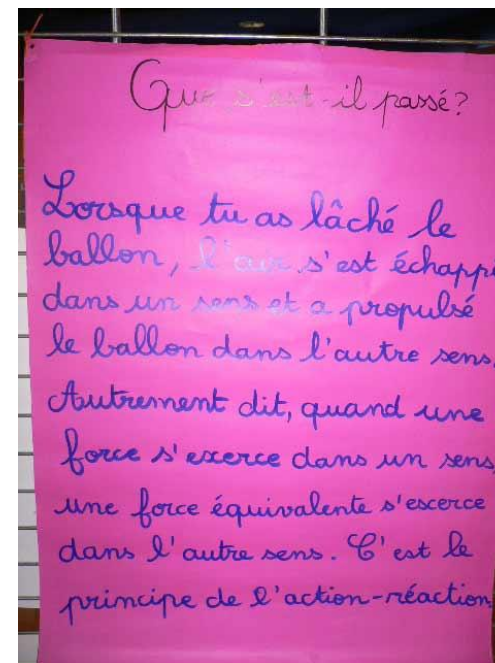 Que s'est-il passé?
Lorsque tu as lâché le
ballon, l'air s'est échappé
dans un sens et a propulsé
le ballon dans l'autre sens.
Autrement dit, quand une
force s'exerce dans un sens,
une force équivalente s'escerce
dans l'autre sens. C'est le
principe de l'action-réaction.